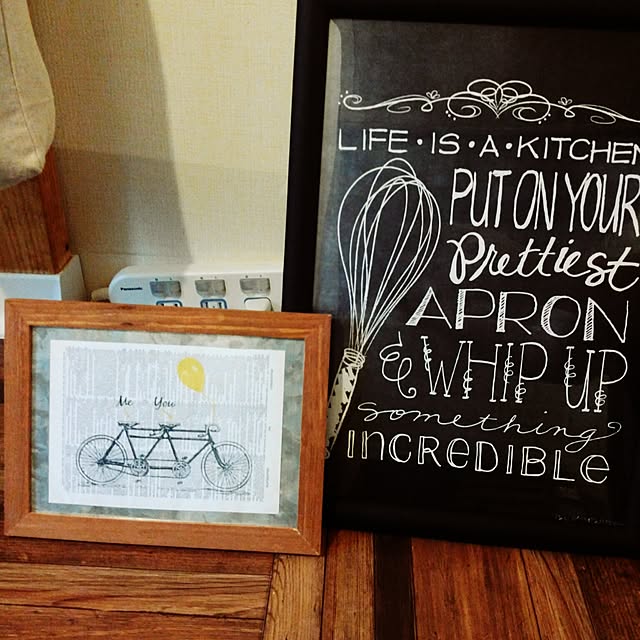 LIFE • IS • A • KITCHEN
PUT ON YOUR
Prettiest
APRON
& WHIP UP
something
INCREDIBLE
Panasonic
Me You